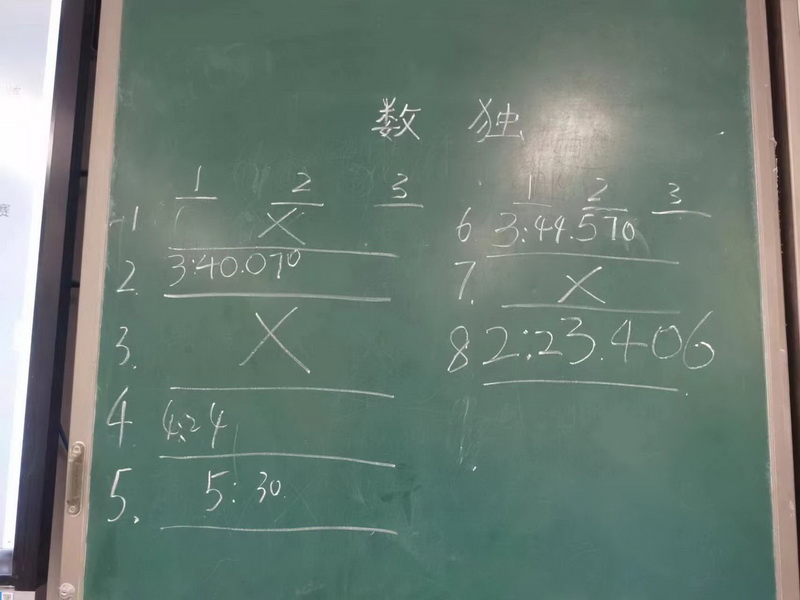 数独
1 2 3
1 X
2. 3:40.070
3. X
4. 4:24
5. 5:30.
1 2 3
6 3:44.570
7. X
8 2:23.406
赛